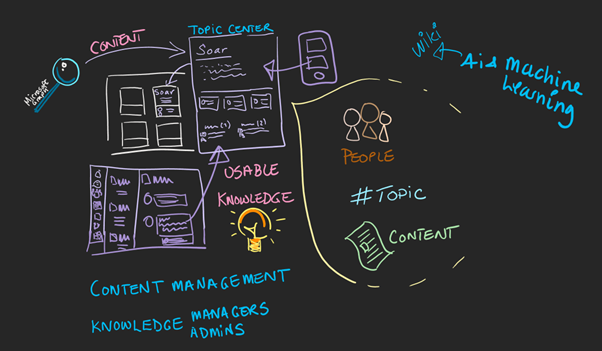 CONTENT
TOPIC CENTER
Soar
Wiki
AI & Machine
Learning
Microsoft
Graph
Soar
PEOPLE
USABLE
KNOWLEDGE
#TOPIC
CONTENT
CONTENT MANAGEMENT
KNOWLEDGE MANAGERS
ADMINS